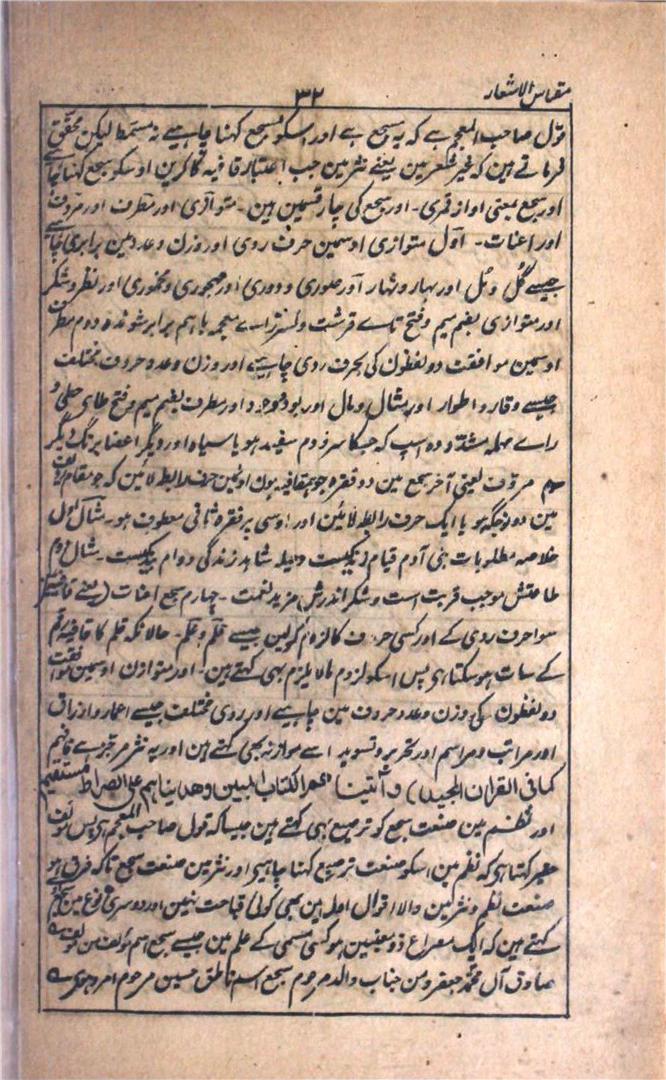 مقیاس الاشعار
۳۲
قول صاحب المعجم ہے کہ یہ مسجع ہے اور اسکو مسجع کہنا چاہیے نہ مسمط لیکن محقق
فرماتے ہین کہ غیر شعر مین یعنے نثر مین جب اعتبار قافیہ کا کرین اوسکو سجع کہنا چاہیے
اور سجع بمعنی اواز قمری۔ اور سجع کی چار قسمین ہین۔ متوازی اور مطرف اور مردف
اور اعنات۔ اول متوازی اوسمین حرف روی اور وزن و عدد مین برابری چاہیے
جیسے گُل و مُل اور بہار و نہار اور صبوری و دوری اور مہجوری و مخموری اور نظر و شکر
اور متوازی بضم میم و فتح تاے قرشت و کسر زاے معجمہ باہم برابر شوندہ دوم مطرف
اوسمین موافقت دو لفظون کی بحرف روی چاہیے اور وزن و عدد حروف مختلف
جیسے وقار و اطوار اور مثال و مال اور بود و وجود اور مطرف بضم میم و فتح طای حطی و
راے مہملہ مشدد وہ اسپ کہ جسکا سر و دم سفید ہو یا سیاہ اور دیگر اعضا برنگ دیگر
سوم مردف یعنی آخر سجع مین دو فقرہ جو ہمقافیہ ہون اونمین حرف رابطہ لائین کہ جو مقام
مین دونو جگہ ہو یا ایک حرف رابطہ لائین اور اوسی پر فقرہ ثانی معطوف ہو۔ مثال اول
خلاصہ مطلوبات بنی آدم قیام زندگیست وسیلہ شاہد زندگی دوام بندگیست۔ مثال دوم
طاعتش موجب قربت است و شکر اندرش مزید نعمت۔ چہارم سجع اعنات یعنے قافیہ مین
سوا حرف روی کے اور کسی حرف کا لزوم کرلین جیسے عَلَم و قلم۔ حالانکہ قلم کا قافیہ رقم
کے سات ہو سکتا ہی پس اسکو لزوم مالا یلزم بھی کہتے ہین۔ اور متوازن اوسمین موافقت
دو لفظون کی وزن و عدد حروف مین چاہیے اور روی مختلف جیسے اعمار و ارزاق
اور مراتب و مراسم اور تحریر و تسوید اسے موازنہ بھی کہتے ہین اور یہ نثر مرجز ہے فافہم
کما فی القران المجید) و آتینا ھما الکتاب المبین وھدیناہم علی الصراط المستقیم
اور نظم مین صنعت سجع کو ترصیع بھی کہتے ہین جیسا کہ قول صاحب المعجم ہی پس مؤلف
حقیر کہتا ہی کہ نظم مین اسکو صنعت ترصیع کہنا چاہیے اور نثر مین صنعت سجع تاکہ فرق ہو
صنعت نظم و نثر مین والا اقوال اجلہ مین بھی کوئی قباحت نہین اور دوسری نوع مین سجع
کہتے ہین کہ ایک مصراع ذو معنیین ہو کسی مسمی کے علم مین جیسے سجع اسم مؤلف من مؤلف
صادق آل محمد جعفر و من جناب والد مرحوم سجع اسم ناطق حسین مرحوم امروہوی